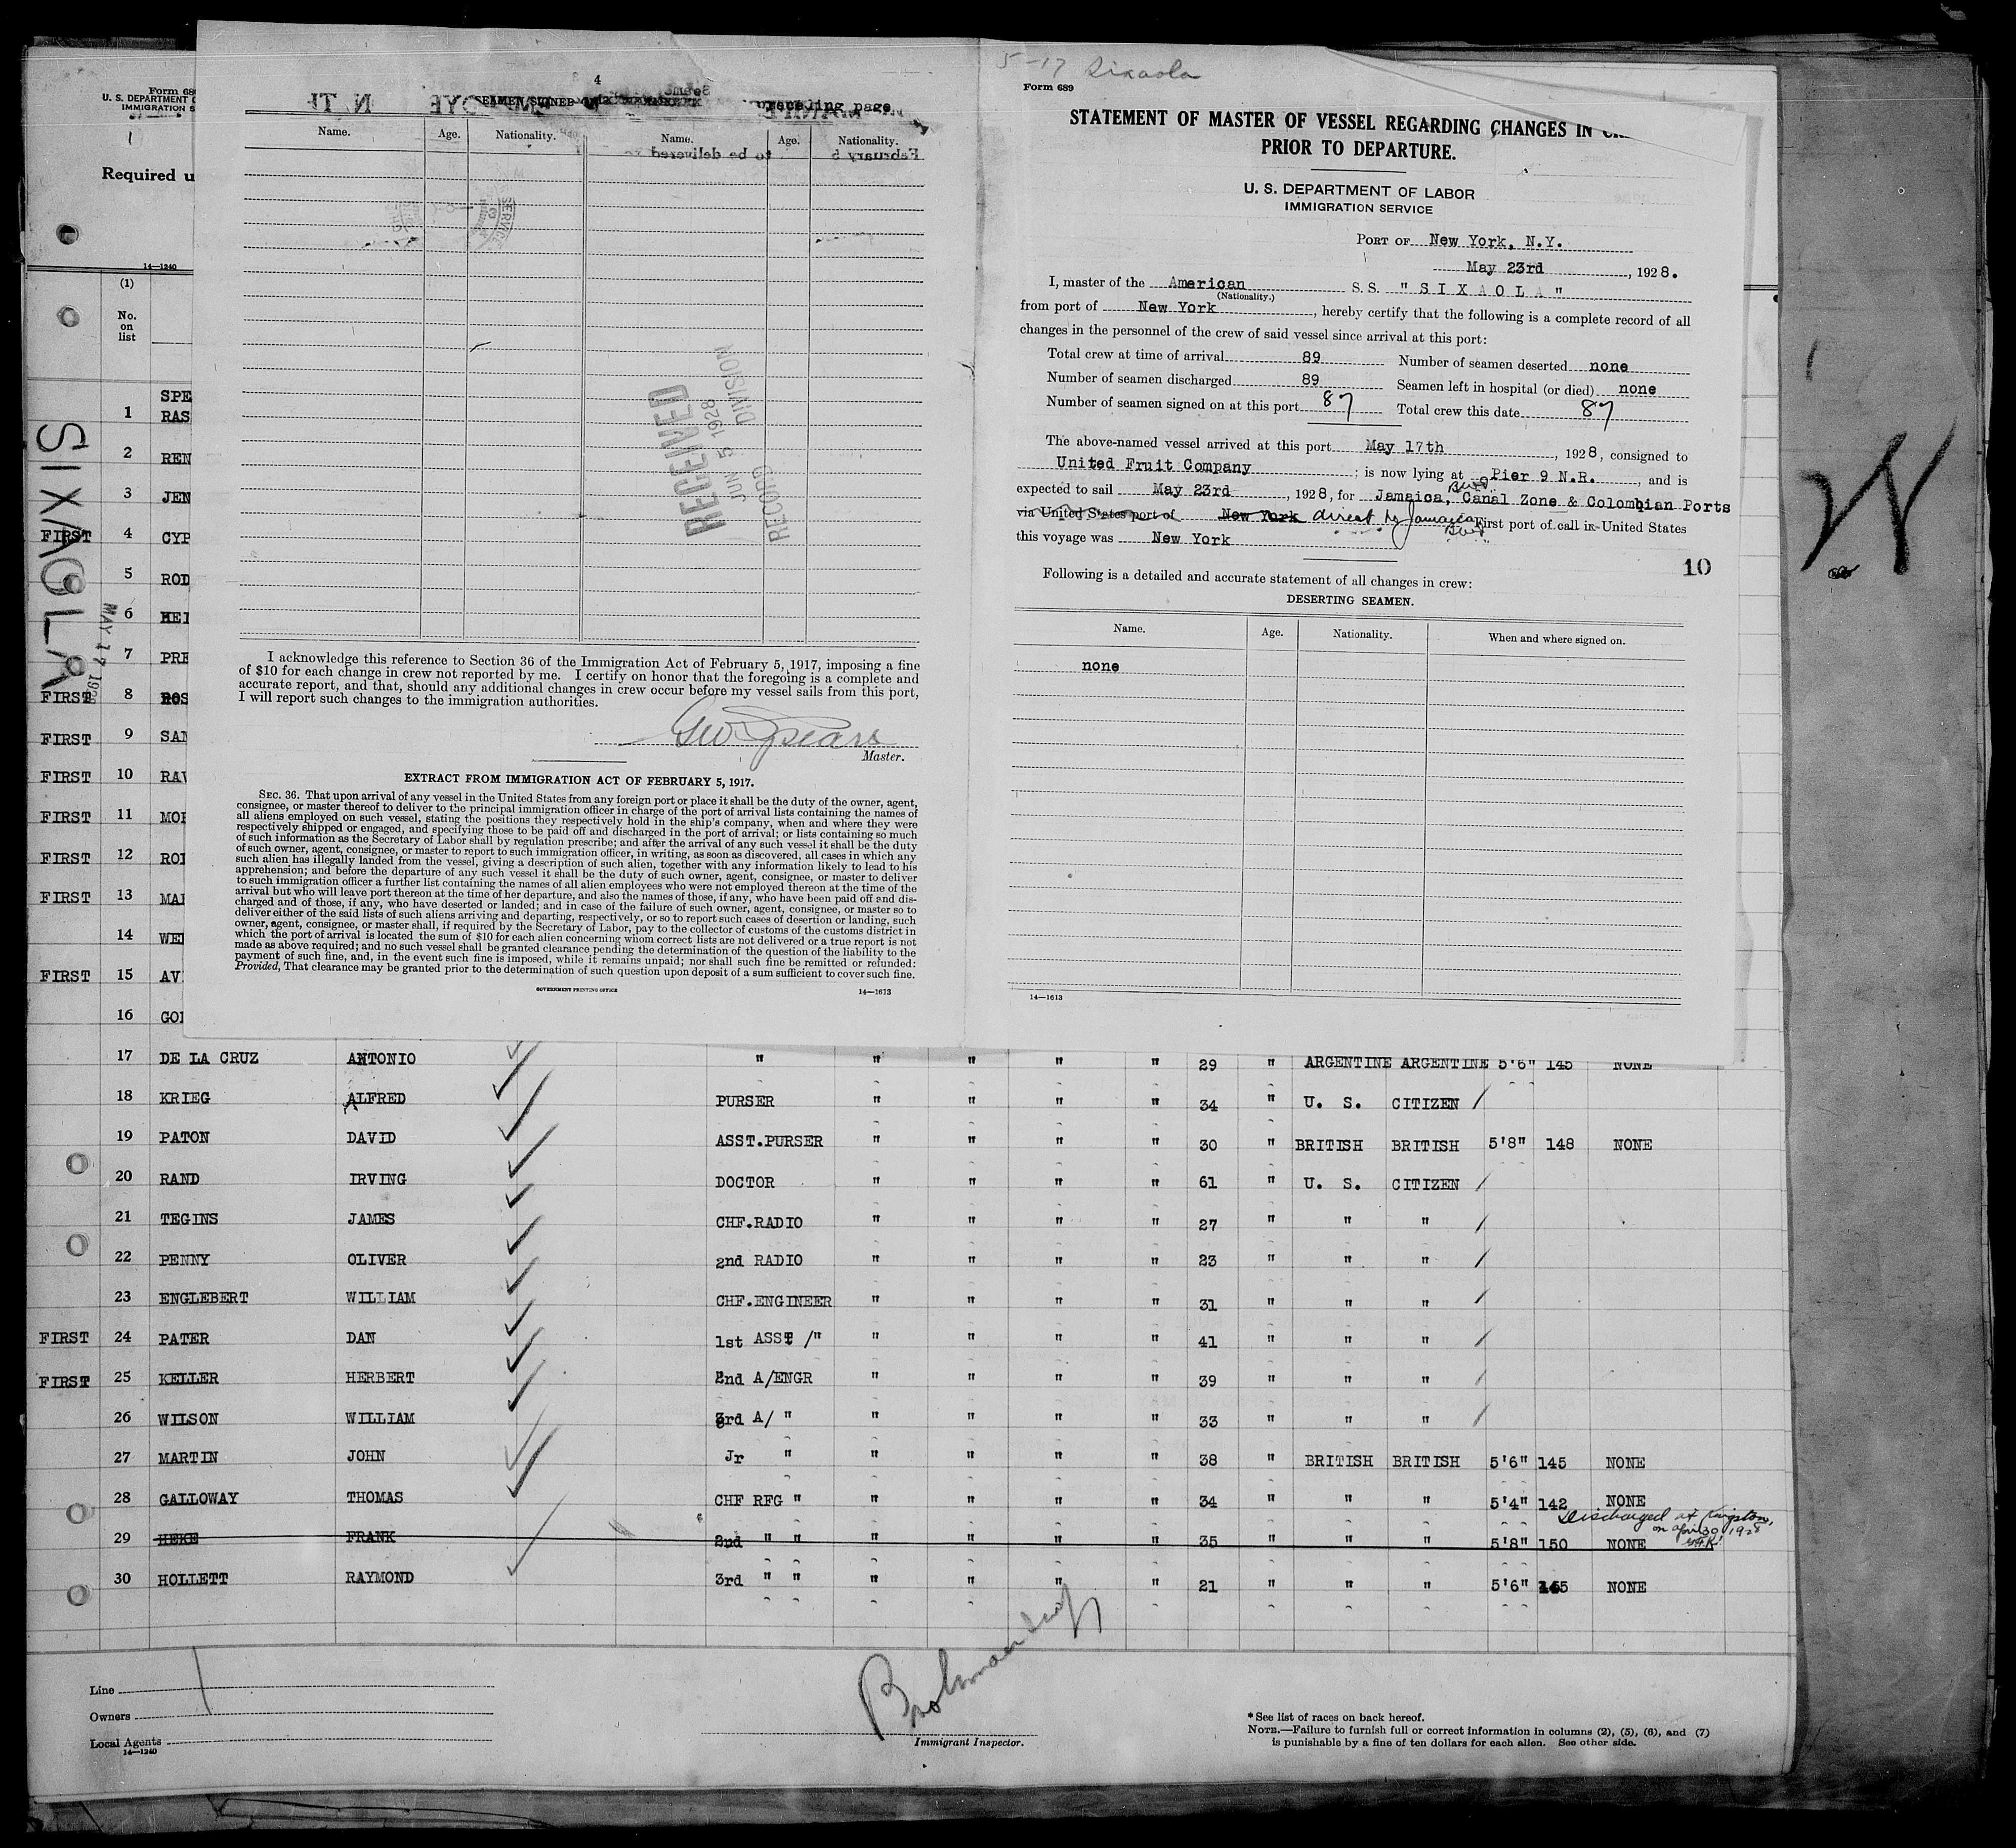 5-17 Sixaola
Form 689
STATEMENT OF MASTER OF VESSEL REGARDING CHANGES IN
PRIOR TO DEPARTURE.
U. S. DEPARTMENT OF LABOR
IMMIGRATION SERVICE
PORT OF New York, N.Y.
May 23rd, 1928.
I, master of the American S.S. "SIXAOLA"
(Nationality.)
from port of New York, hereby certify that the following is a complete record of all
changes in the personnel of the crew of said vessel since arrival at this port:
Total crew at time of arrival 89 Number of seamen deserted none
Number of seamen discharged 89 Seamen left in hospital (or died) none
Number of seamen signed on at this port 87 Total crew this date 87
The above-named vessel arrived at this port May 17th, 1928, consigned to
United Fruit Company; is now lying at Pier 9 N.R., and is
expected to sail May 23rd, 1928, for Jamaica, Canal Zone & Colombian Ports
via United States port of New York direct to Jamaica First port of call in United States
this voyage was New York
10
Following is a detailed and accurate statement of all changes in crew:
DESERTING SEAMEN.
Name. Age. Nationality. When and where signed on.
none
14—1613
4
SEAMEN SIGNED preceling page
Name. Age. Nationality. Name. Age. Nationality.
RECEIVED
JUN 5 1928
RECORD DIVISION
I acknowledge this reference to Section 36 of the Immigration Act of February 5, 1917, imposing a fine
of $10 for each change in crew not reported by me. I certify on honor that the foregoing is a complete and
accurate report, and that, should any additional changes in crew occur before my vessel sails from this port,
I will report such changes to the immigration authorities.
Geo Spears
Master.
EXTRACT FROM IMMIGRATION ACT OF FEBRUARY 5, 1917.
SEC. 36. That upon arrival of any vessel in the United States from any foreign port or place it shall be the duty of the owner, agent,
consignee, or master thereof to deliver to the principal immigration officer in charge of the port of arrival lists containing the names of
all aliens employed on such vessel, stating the positions they respectively hold in the ship's company, when and where they were
respectively shipped or engaged, and specifying those to be paid off and discharged in the port of arrival; or lists containing so much
of such information as the Secretary of Labor shall by regulation prescribe; and after the arrival of any such vessel it shall be the duty
of such owner, agent, consignee, or master to report to such immigration officer, in writing, as soon as discovered, all cases in which any
such alien has illegally landed from the vessel, giving a description of such alien, together with any information likely to lead to his
apprehension; and before the departure of any such vessel it shall be the duty of such owner, agent, consignee, or master to deliver
to such immigration officer a further list containing the names of all alien employees who were not employed thereon at the time of the
arrival but who will leave port thereon at the time of her departure, and also the names of those, if any, who have been paid off and dis-
charged and of those, if any, who have deserted or landed; and in case of the failure of such owner, agent, consignee, or master so to
deliver either of the said lists of such aliens arriving and departing, respectively, or so to report such cases of desertion or landing, such
owner, agent, consignee, or master shall, if required by the Secretary of Labor, pay to the collector of customs of the customs district in
which the port of arrival is located the sum of $10 for each alien concerning whom correct lists are not delivered or a true report is not
made as above required; and no such vessel shall be granted clearance pending the determination of the question of the liability to the
payment of such fine, and, in the event such fine is imposed, while it remains unpaid; nor shall such fine be remitted or refunded:
Provided, That clearance may be granted prior to the determination of such question upon deposit of a sum sufficient to cover such fine.
GOVERNMENT PRINTING OFFICE 14—1613
Form 68
U. S. DEPARTMENT
IMMIGRATION S
Required u
14—1240
(1)
No.
on
list
SIXAOLA
MAY 17 1928
SPE
1 RAS
2 REN
3 JEN
FIRST 4 CYP
5 ROD
6 HEI
7 PRE
FIRST 8 ROS
FIRST 9 SAN
FIRST 10 RAV
FIRST 11 MOR
FIRST 12 ROI
FIRST 13 MAI
14 WEI
FIRST 15 AV
16 GOI
17 DE LA CRUZ ANTONIO " " " " " 29 " ARGENTINE ARGENTINE 5'6" 145 NONE
18 KRIEG ALFRED PURSER " " " " 34 " U. S. CITIZEN
19 PATON DAVID ASST.PURSER " " " " 30 " BRITISH BRITISH 5'8" 148 NONE
20 RAND IRVING DOCTOR " " " " 61 " U. S. CITIZEN
21 TEGINS JAMES CHF.RADIO " " " " 27 " " "
22 PENNY OLIVER 2nd RADIO " " " " 23 " " "
23 ENGLEBERT WILLIAM CHF.ENGINEER " " " " 31 " " "
FIRST 24 PATER DAN 1st ASST /" " " " " 41 " " "
FIRST 25 KELLER HERBERT 2nd A/ENGR " " " " 39 " " "
26 WILSON WILLIAM 3rd A/ " " " " " 33 " " "
27 MARTIN JOHN Jr " " " " " 38 " BRITISH BRITISH 5'6" 145 NONE
28 GALLOWAY THOMAS CHF RFG " " " " " 34 " " " 5'4" 142 NONE
Discharged at Kingston,
on April 30 1928
29 HEKE FRANK 2nd " " " " " " 35 " " " 5'8" 150 NONE
30 HOLLETT RAYMOND 3rd " " " " " " 21 " " " 5'6" 145 NONE
Line
Owners
Local Agents
14—1240
Immigrant Inspector.
* See list of races on back hereof.
NOTE.—Failure to furnish full or correct information in columns (2), (5), (6), and (7)
is punishable by a fine of ten dollars for each alien. See other side.